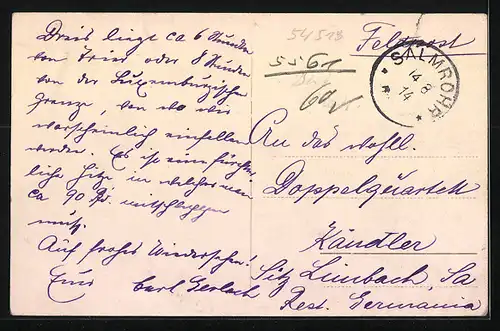 Dries liegt ca 6 Stunden
von Trier oder 8 Stunden
von der Luxemburgische
Grenze, von wo wir
warscheinlich einfallen
werden. Es ist eine fürchter
liche Hitze in welcher man
ca 90 Pfd. mitschleppen
muß.
Auf frohes Wiedersehen!
Euer Carl Gerlach
54513
Feldpost
5561
SALMROHR
14 8
14
An das wohll.
Doppelquartett
Kändler
Sitz Limbach, Sa
Rest. Germania